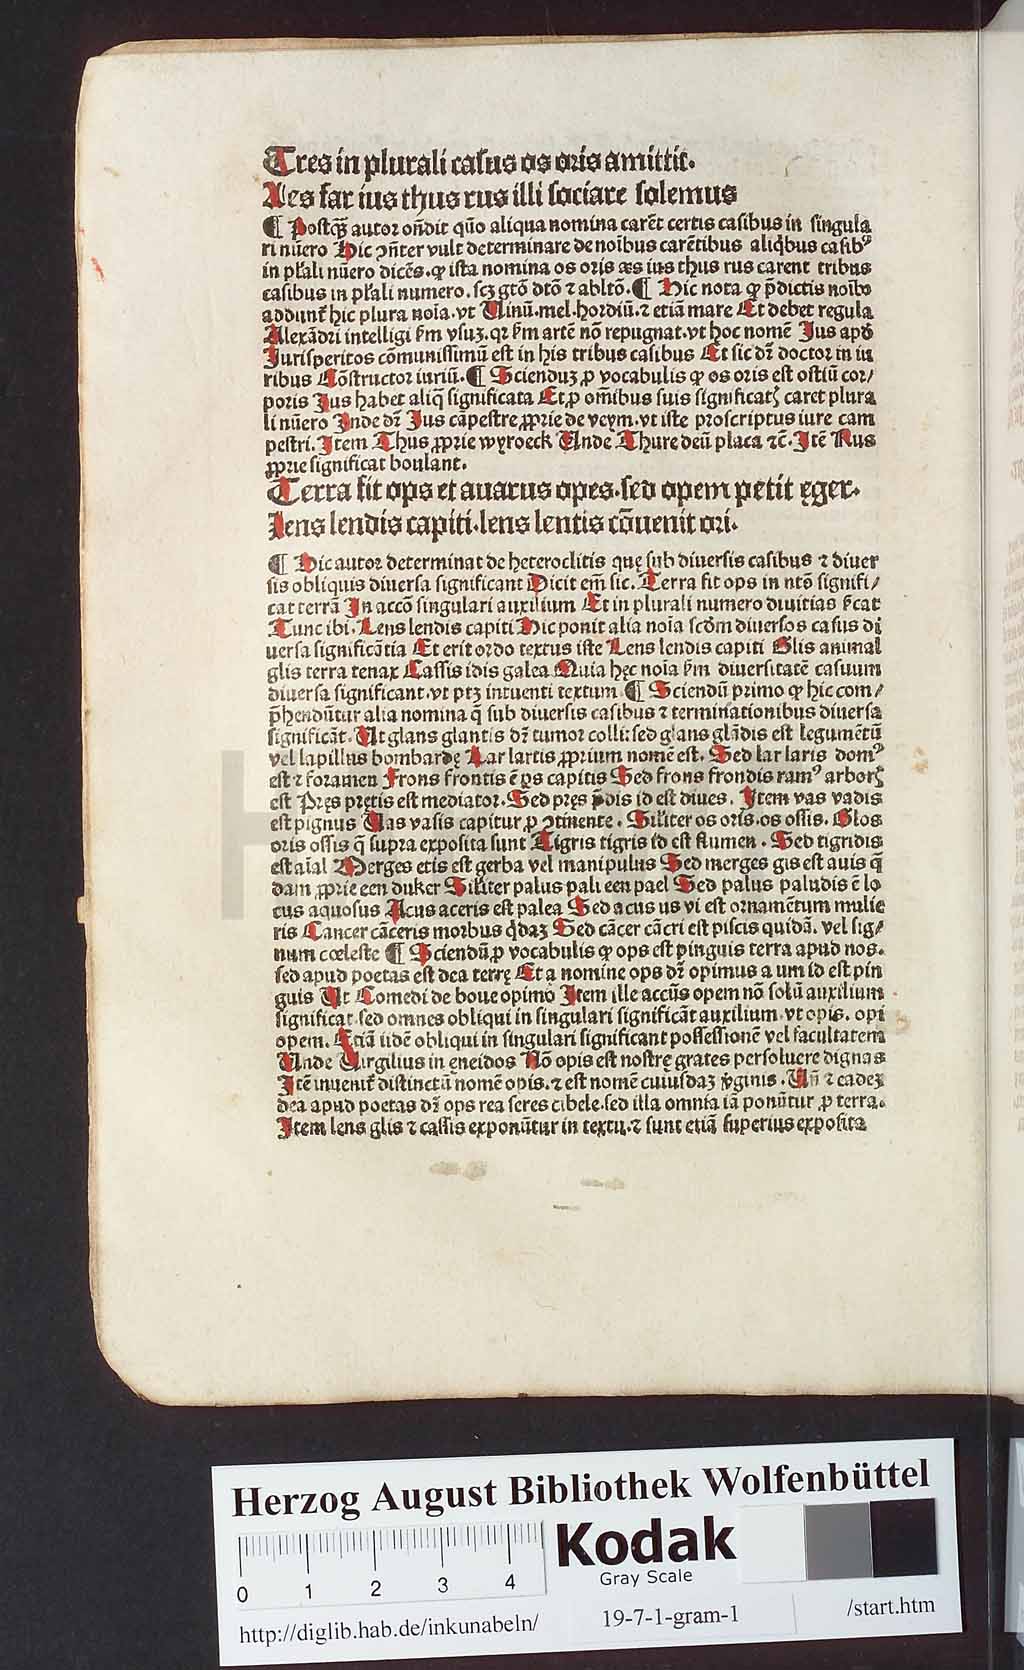 Tres in plurali casus os oris amittit.
Aes far ius thus rus illi sociare solemus
¶ Postq̃ꝫ autor on̄dit quō aliqua nomina carēt certis casibus in singula
ri nūero Hic ↄn̄ter vult determinare de noībus carētibus aliqͥbus casibꝰ
in pl̄ali nūero dicēs.ꝙ ista nomina os oris æs ius thus rus carent tribus
casibus in pl̄ali numero.scꝫ gtō dtō ⁊ abltō.¶ Hic nota ꝙ p̄dictis noībꝰ
addunt̄ hic plura noīa.vt Uinū.mel.hordiū.⁊ etiā mare Et debet regula
Alexādri intelligi ẜm vsuꝫ.qꝛ ẜm artē nō repugnat.vt hoc nomē Jus apđ
Jurisperitos cōmunissimū est in his tribus casibus Et sic dꝛ̄ doctor in iu
ribus Cōstructor iuriū.¶ Scienduꝫ ꝓ vocabulis ꝙ os oris est ostiū cor/
poris Jus habet aliq̄ significata Et ꝓ om̄ibus suis significatꝭ caret plura
li nūero Jnde dꝛ̄ Jus cāpestre ꝓprie de veym.vt iste proscriptus iure cam
pestri.Jtem Thus ꝓprie wyroeck Unde Thure deū placa ⁊c̄.Jtē Rus
ꝓprie significat boulant.
Terra fit ops et auarus opes.sed opem petit ęger.
Lens lendis capiti.lens lentis cōuenit ori.
¶ Hic autor determinat de heteroclitis quę sub diuersis casibus ⁊ diuer
sis obliquis diuersa significant Dicit em̄ sic.Terra fit ops in ntō signifi/
cat terrā Jn accō singulari auxilium Et in plurali numero diuitias ẜcat
Tunc ibi.Lens lendis capiti Hic ponit alia noīa scđm diuersos casus di
uersa significātia Et erit ordo textus iste Lens lendis capiti Glis animal
glis terra tenax Cassis idis galea Quia hęc noīa ẜm diuersitatē casuum
diuersa significant.vt ptꝫ intuenti textum ¶ Sciendū primo ꝙ hic com/
p̄hendūtur alia nomina q̄ sub diuersis casibus ⁊ terminationibus diuersa
significāt.Ut glans glantis dꝛ̄ tumor colli:sed glans glādis est legumētū
vel lapillus bombardę Lar lartis ꝓprium nomē est.Sed lar laris domꝰ
est ⁊ foramen Frons frontis ē ꝑs capitis Sed frons frondis ramꝰ arborꝭ
est Pręs prętis est mediator.Sed pręs p̄dis id est diues.Jtem vas vadis
est pignus Uas vasis capitur ꝓ ↄtinente.Sil̄iter os oris.os ossis.Glos
oris ossis q̄ supra exposita sunt Tigris tigris id est flumen.Sed tigridis
est aīal Merges etis est gerba vel manipulus Sed merges gis est auis q̄
dam ꝓprie een duker Sil̄iter palus pali een pael Sed palus paludis ē lo
cus aquosus Acus aceris est palea Sed acus us vi est ornamētum mulie
ris Cancer cāceris morbus qͥdaꝫ Sed cācer cācri est piscis quidā.vel sig/
num cœleste ¶ Sciendū ꝓ vocabulis ꝙ ops est pinguis terra apud nos.
sed apud poetas est dea terrę Et a nomine ops dꝛ̄ opimus a um id est pin
guis Ut Comedi de boue opimo Jtem ille accūs opem nō solū auxilium
significat.sed omnes obliqui in singulari significāt auxilium.vt opis.opi
opem.Etiā iidē obliqui in singulari significant possessionē vel facultatem
Unde Uirgilius in ęneidos Nō opis est nostrę grates persoluere dignas
Jtē inuenit̄ distinctū nomē opis.⁊ est nomē cuiusdaꝫ v̄ginis.Un̄ ⁊ eadeꝫ
dea apud poetas dꝛ̄ ops rea seres cibele.sed illa omnia iā ponūtur ꝓ terra.
Jtem lens glis ⁊ cassis exponūtur in textu.⁊ sunt etiā superius exposita
Herzog August Bibliothek Wolfenbüttel
Kodak
Gray Scale
0 1 2 3 4
http://diglib.hab.de/inkunabeln/ 19-7-1-gram-1 /start.htm